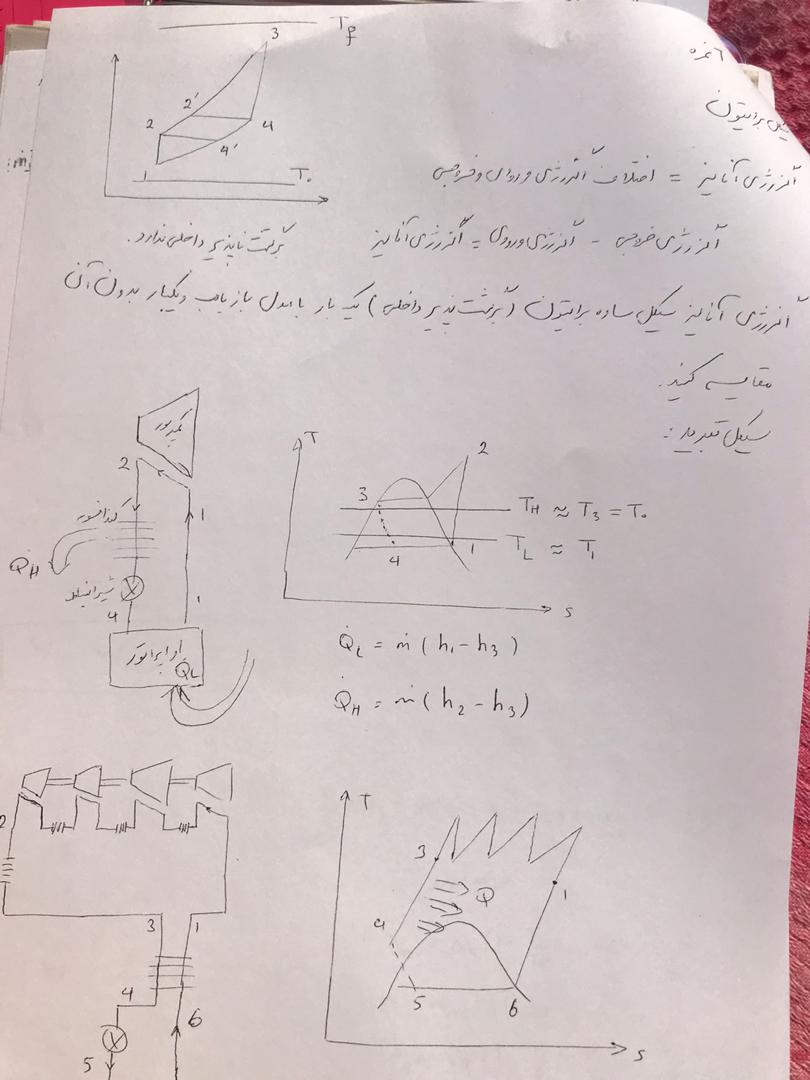 T_f
3
2'
2
4
4'
1
T_0
۶ نمره
سیکل برایتون
اگزرژی آنالیز = اختلاف اگزرژی ورودی و خروجی
اگزرژی خروجی - اگزرژی ورودی = اگزرژی آنالیز
برگشت ناپذیر داخلی ندارد.
اگزرژی آنالیز سیکل ساده برایتون (برگشت پذیر داخلی) یک بار با مبدل بازیاب و یکبار بدون آن
مقایسه کنید.
سیکل تبرید:
کمپرسور
2
کندانسور
1
Q̇_H
شیر انبساط
4
1
اواپراتور
Q̇_L
T
2
3
T_H ≈ T_3 = T_0
4
1
T_L ≈ T_1
s
Q̇_L = ṁ (h_1 - h_3)
Q̇_H = ṁ (h_2 - h_3)
2
3
1
4
6
5
T
3
Q
1
4
5
6
s